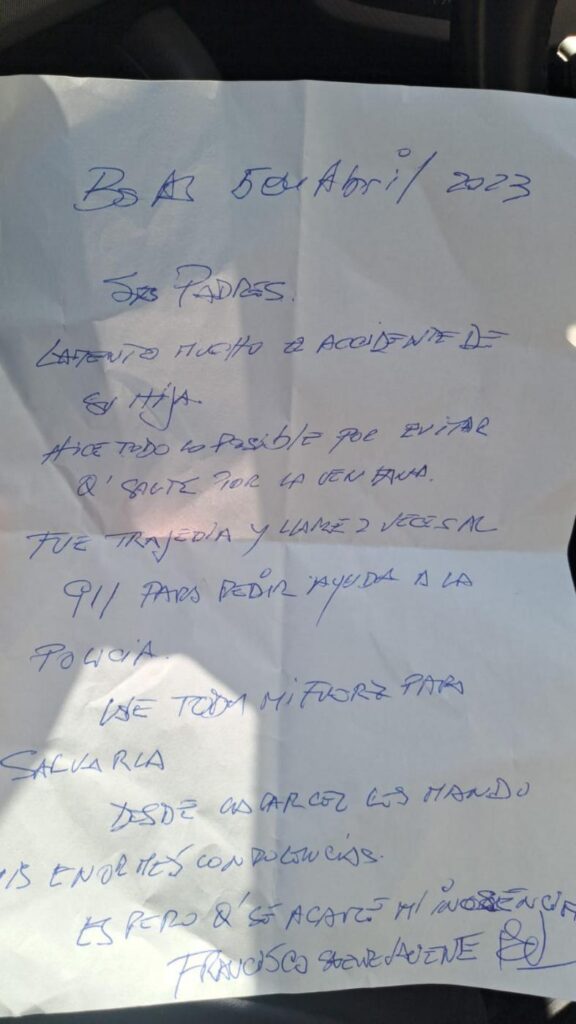 Bs As 5 de Abril/2023
Sres PADRES.
LAMENTO MUCHO EL ACCIDENTE DE
SU HIJA.
HICE TODO LO POSIBLE POR EVITAR
Q' SALTE POR LA VENTANA.
FUE TRAJEDIA Y LLAME 2 VECES AL
911 PARA PEDIR AYUDA A LA
POLICIA.
USE TODA MI FUERZ PARA
SALVARLA
DESDE LA CARCEL LES MANDO
MIS ENORMES CONDOLENCIAS.
ESPERO Q' SE ACLARE MI INOSENCIA
FRANCISCO